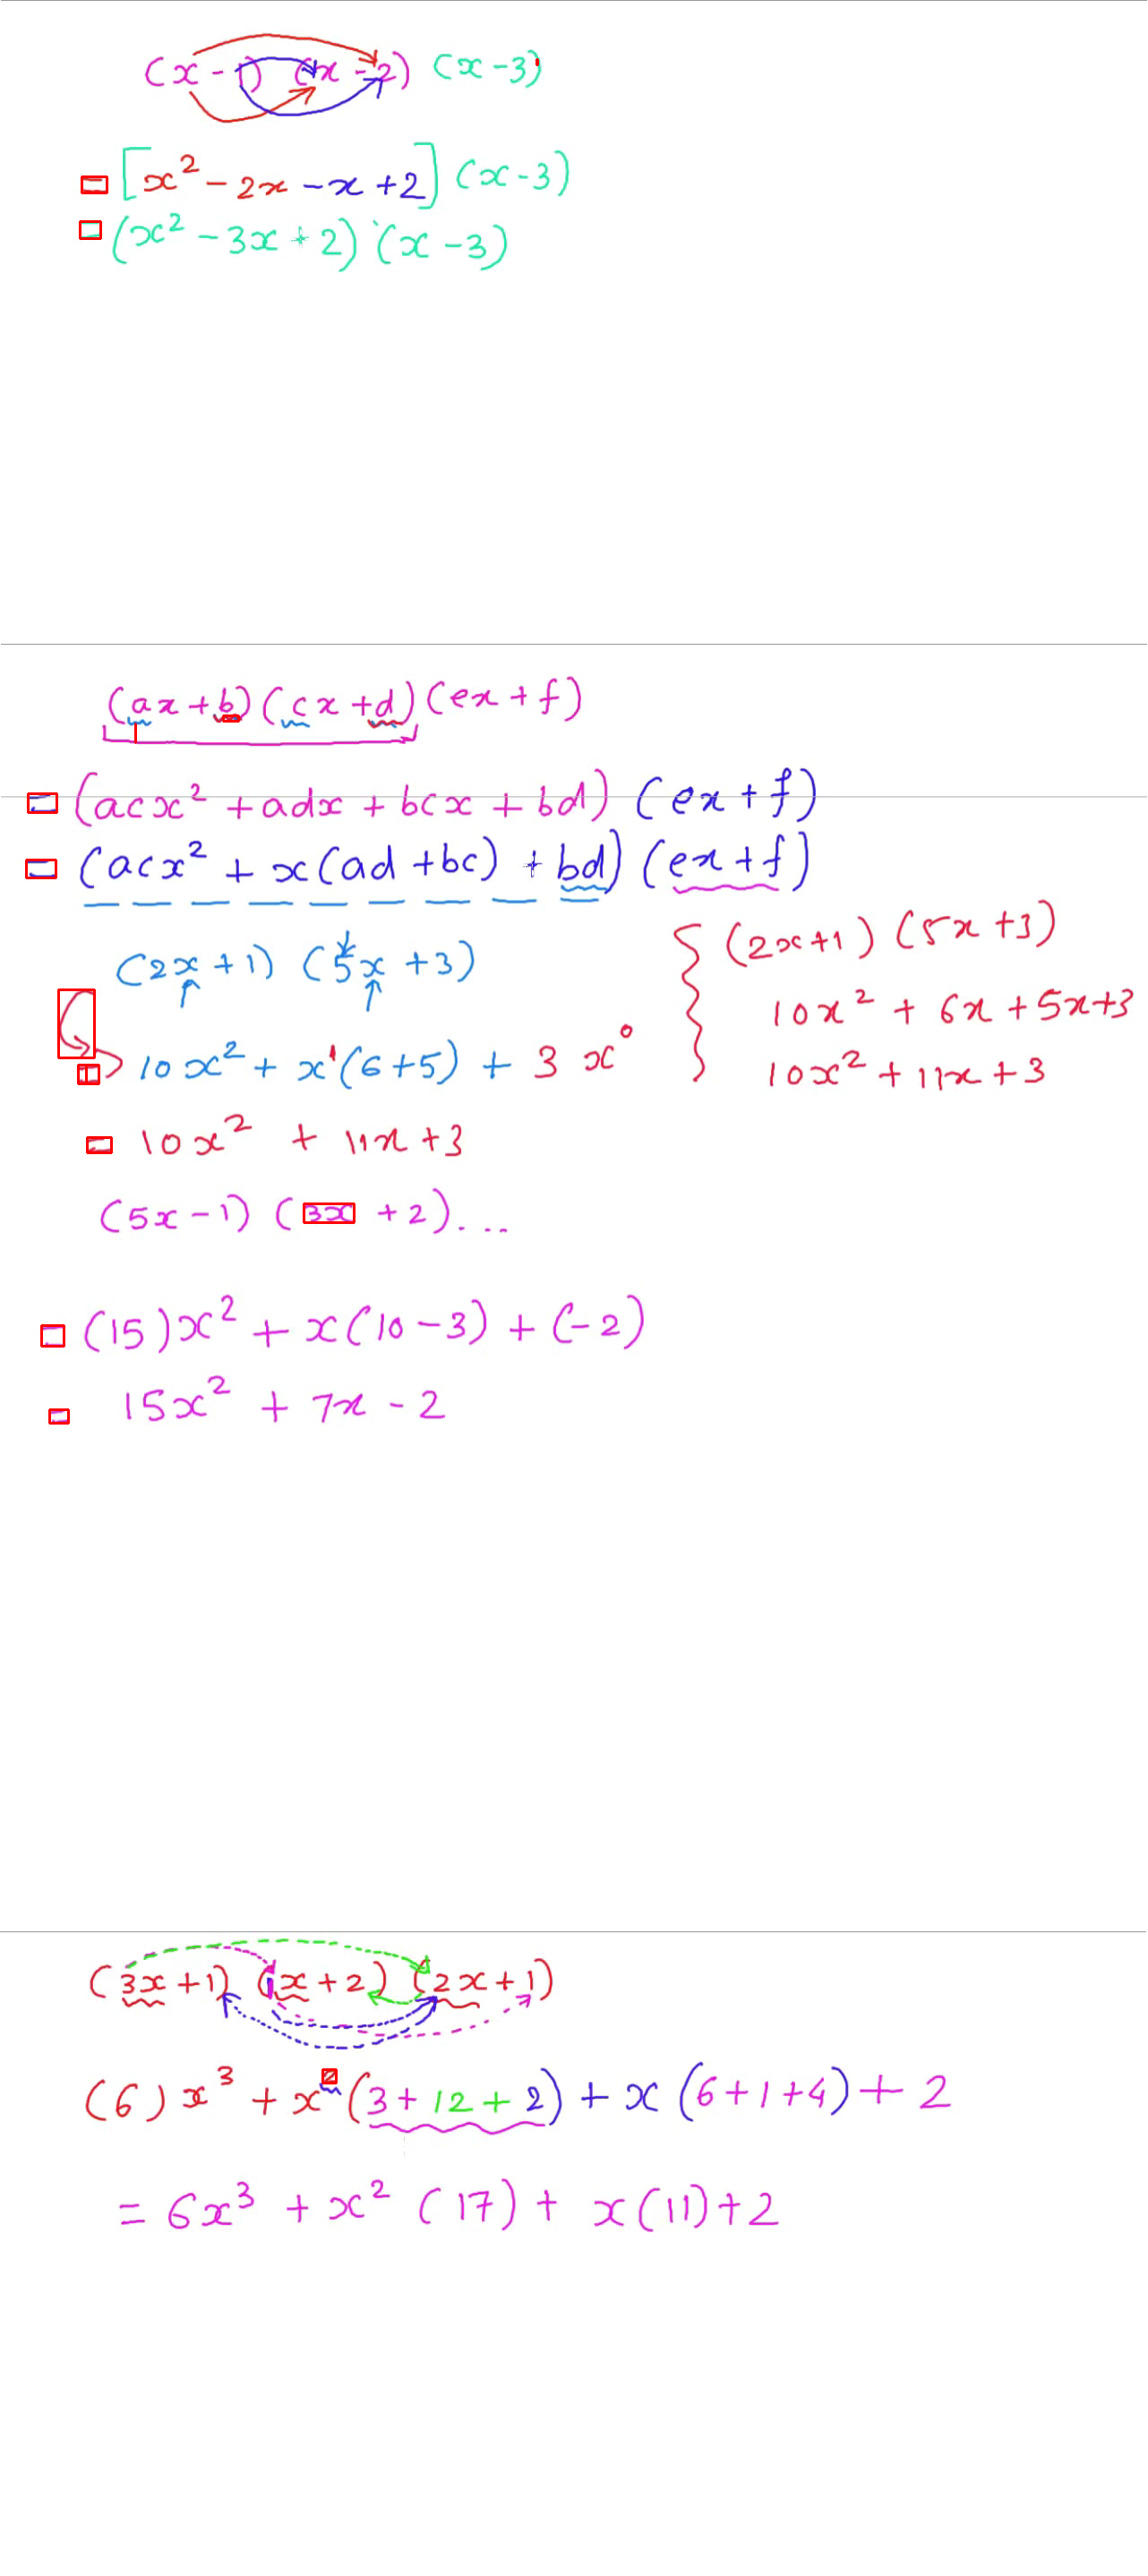 (x - 1) (x - 2) (x - 3)
= [x² - 2x - x + 2] (x - 3)
= (x² - 3x + 2) (x - 3)
(ax + b) (cx + d) (ex + f)
= (acx² + adx + bcx + bd) (ex + f)
= (acx² + x(ad + bc) + bd) (ex + f)
(2x + 1) (5x + 3)
10x² + x¹(6 + 5) + 3x⁰
= 10x² + 11x + 3
(2x + 1) (5x + 3)
10x² + 6x + 5x + 3
10x² + 11x + 3
(5x - 1) (3x + 2)...
= (15)x² + x(10 - 3) + (-2)
= 15x² + 7x - 2
(3x + 1) (x + 2) (2x + 1)
(6)x³ + x²(3 + 12 + 2) + x(6 + 1 + 4) + 2
= 6x³ + x²(17) + x(11) + 2